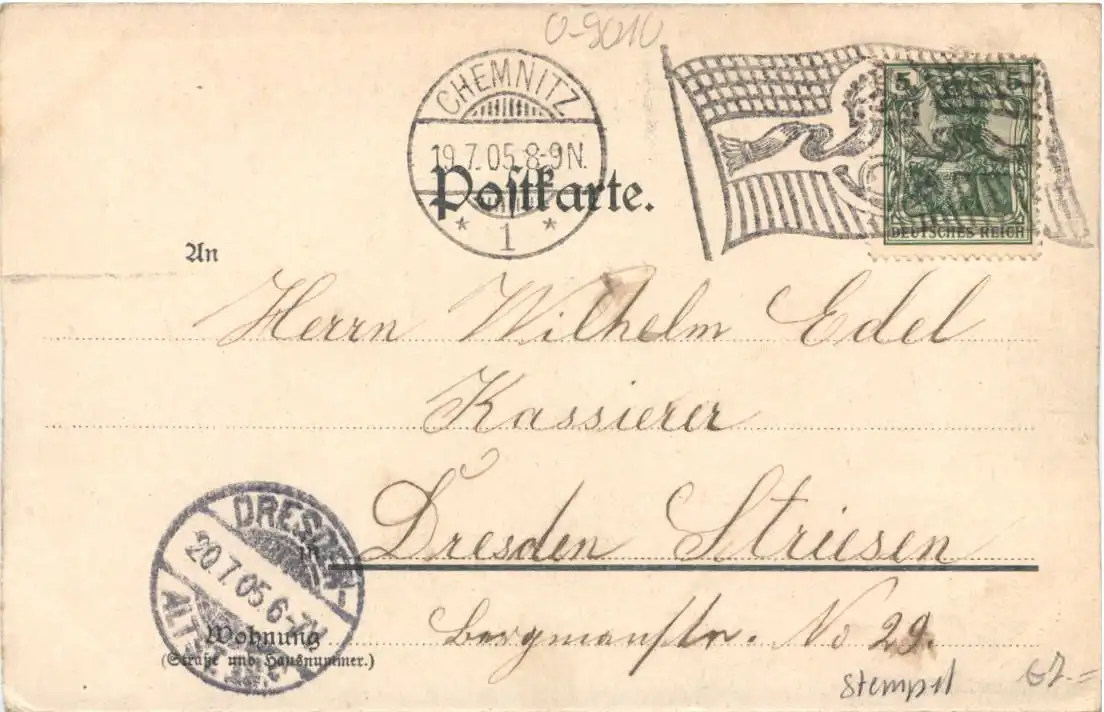 O-9010
CHEMNITZ
19.7.05.8-9N.
* 1 *
5 5
DEUTSCHES REICH
Postkarte.
An
Herrn Wilhelm Edel
Kassierer
in Dresden Striesen
DRESDEN-
20.7.05.6-7V
ALTST.
Wohnung
(Straße und Hausnummer.)
Bergmannstr. No 29.
Stempel